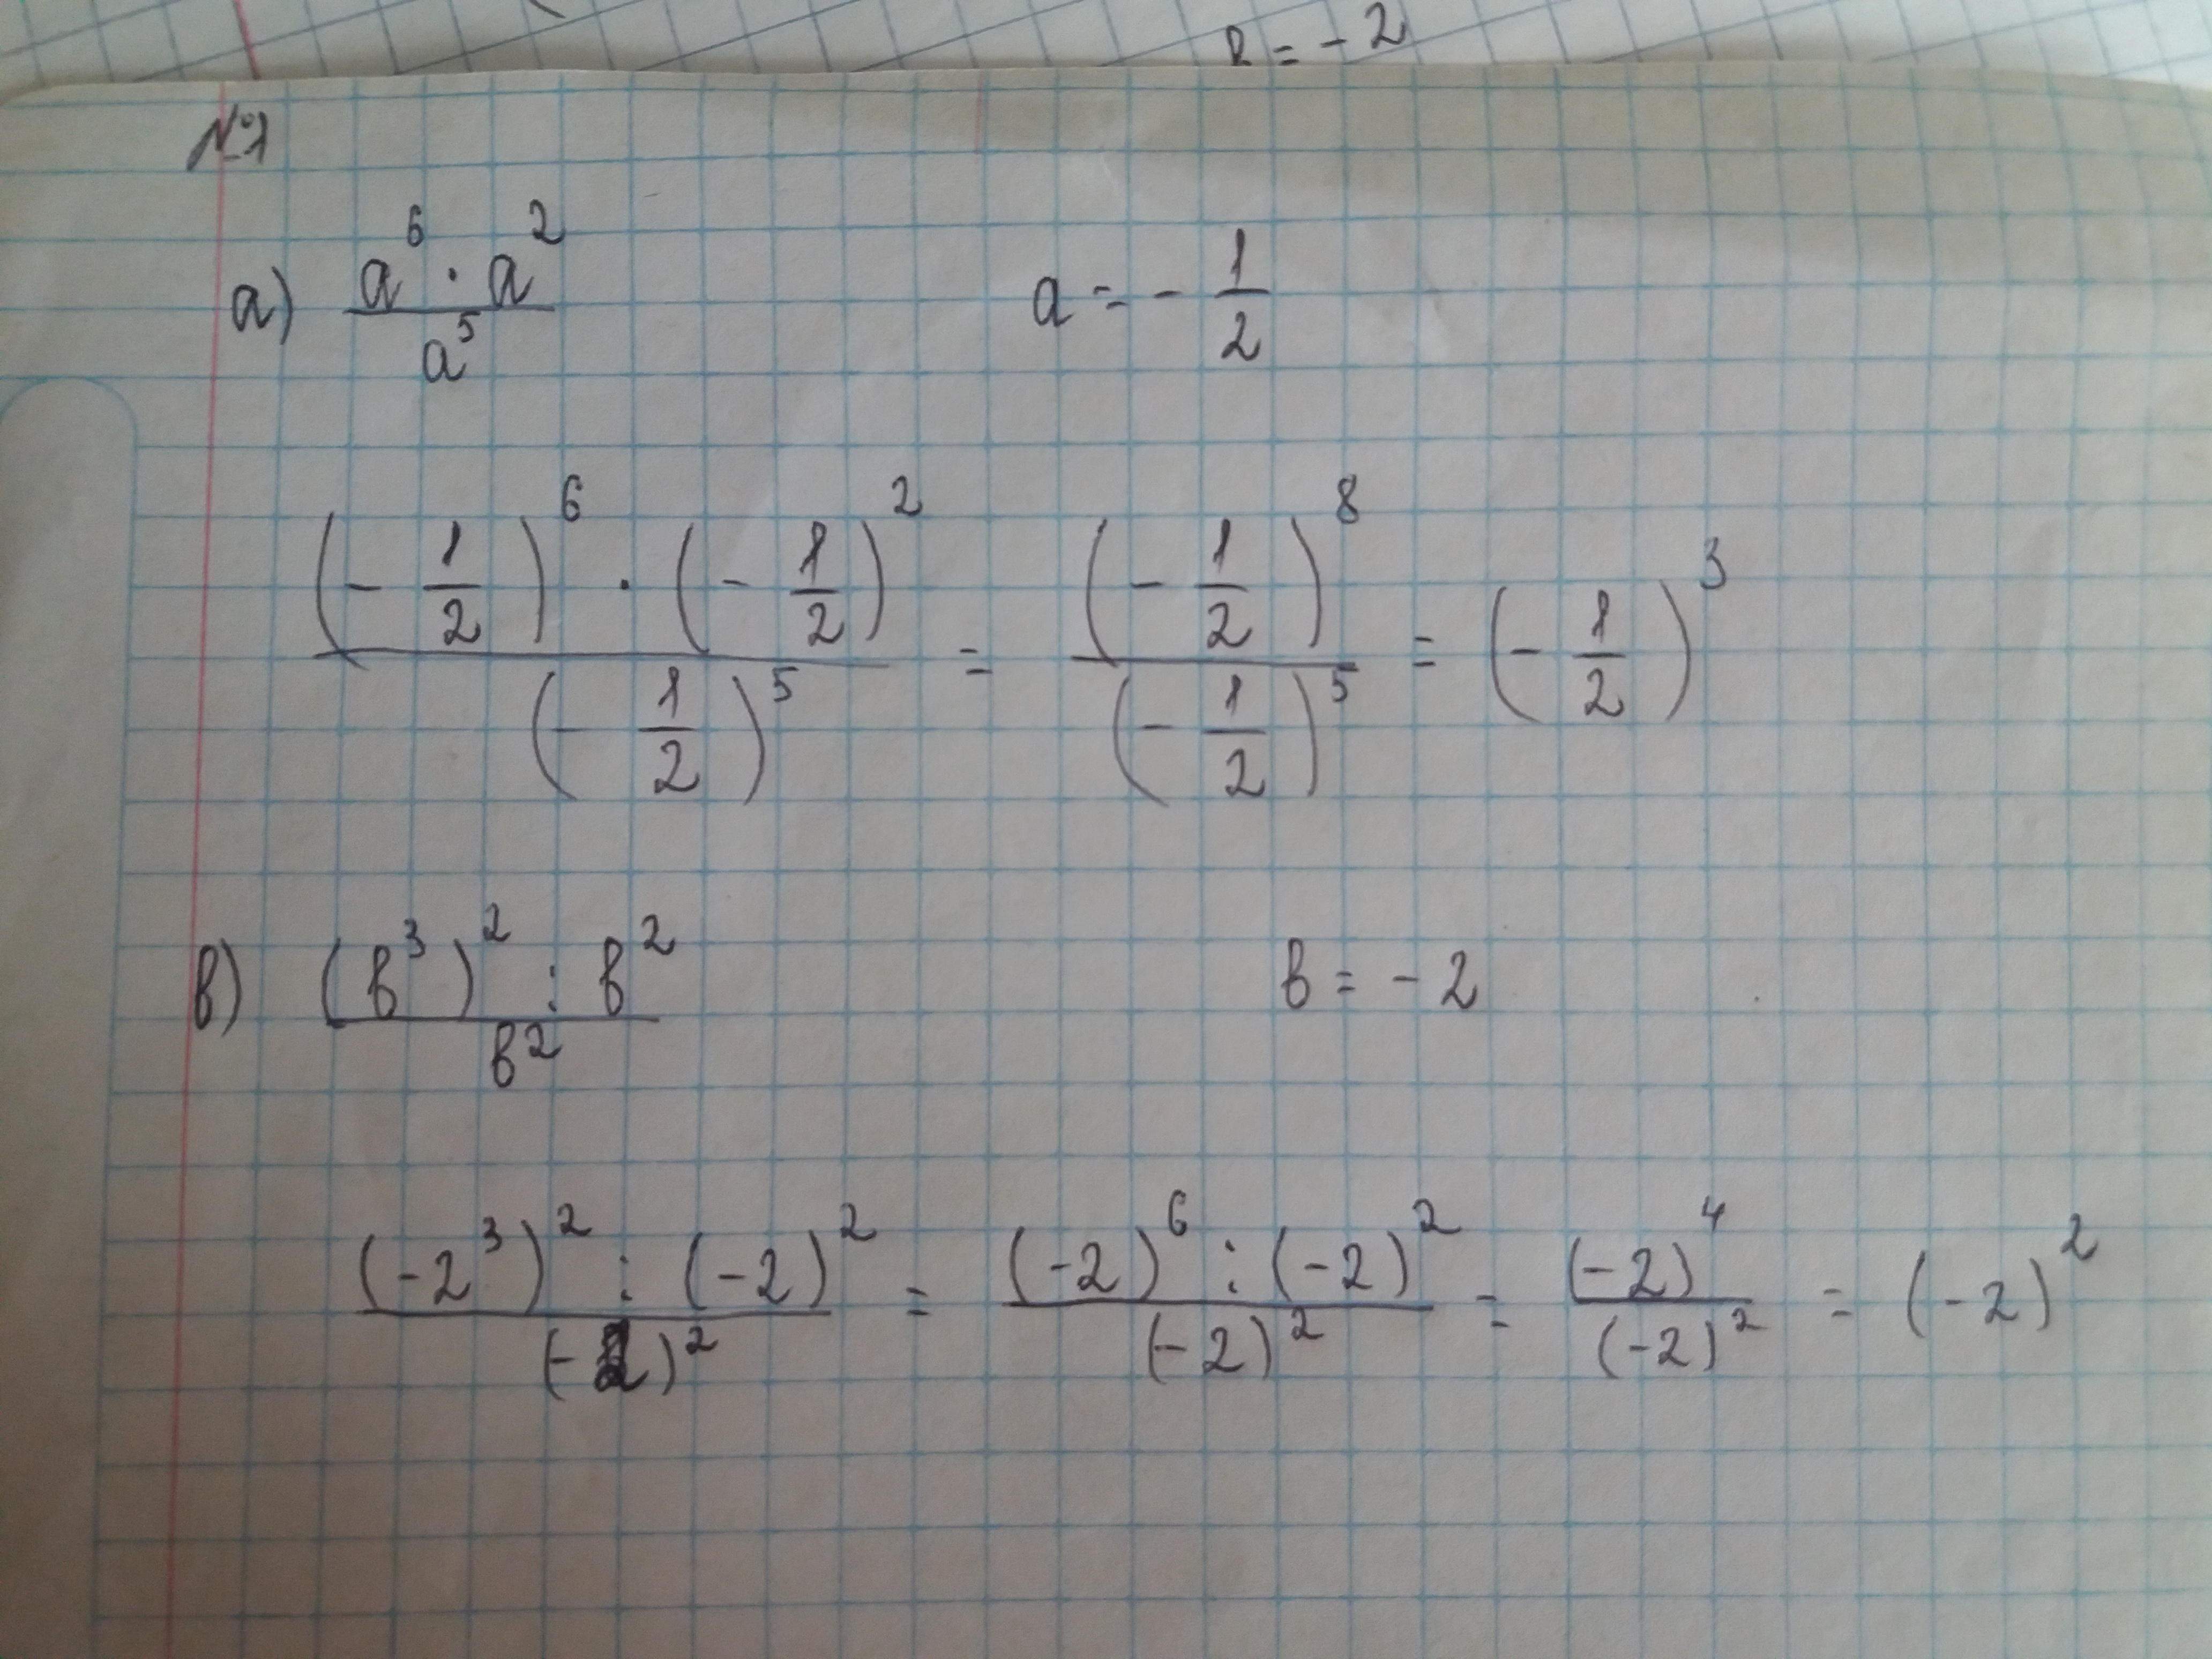 в = - 2
№1
а) (a⁶ · a²) / a⁵ a = - 1/2
((- 1/2)⁶ · (- 1/2)²) / (- 1/2)⁵ = (- 1/2)⁸ / (- 1/2)⁵ = (- 1/2)³
в) ((в³)² : в²) / в² в = - 2
((-2³)² : (-2)²) / (-2)² = ((-2)⁶ : (-2)²) / (-2)² = (-2)⁴ / (-2)² = (-2)²